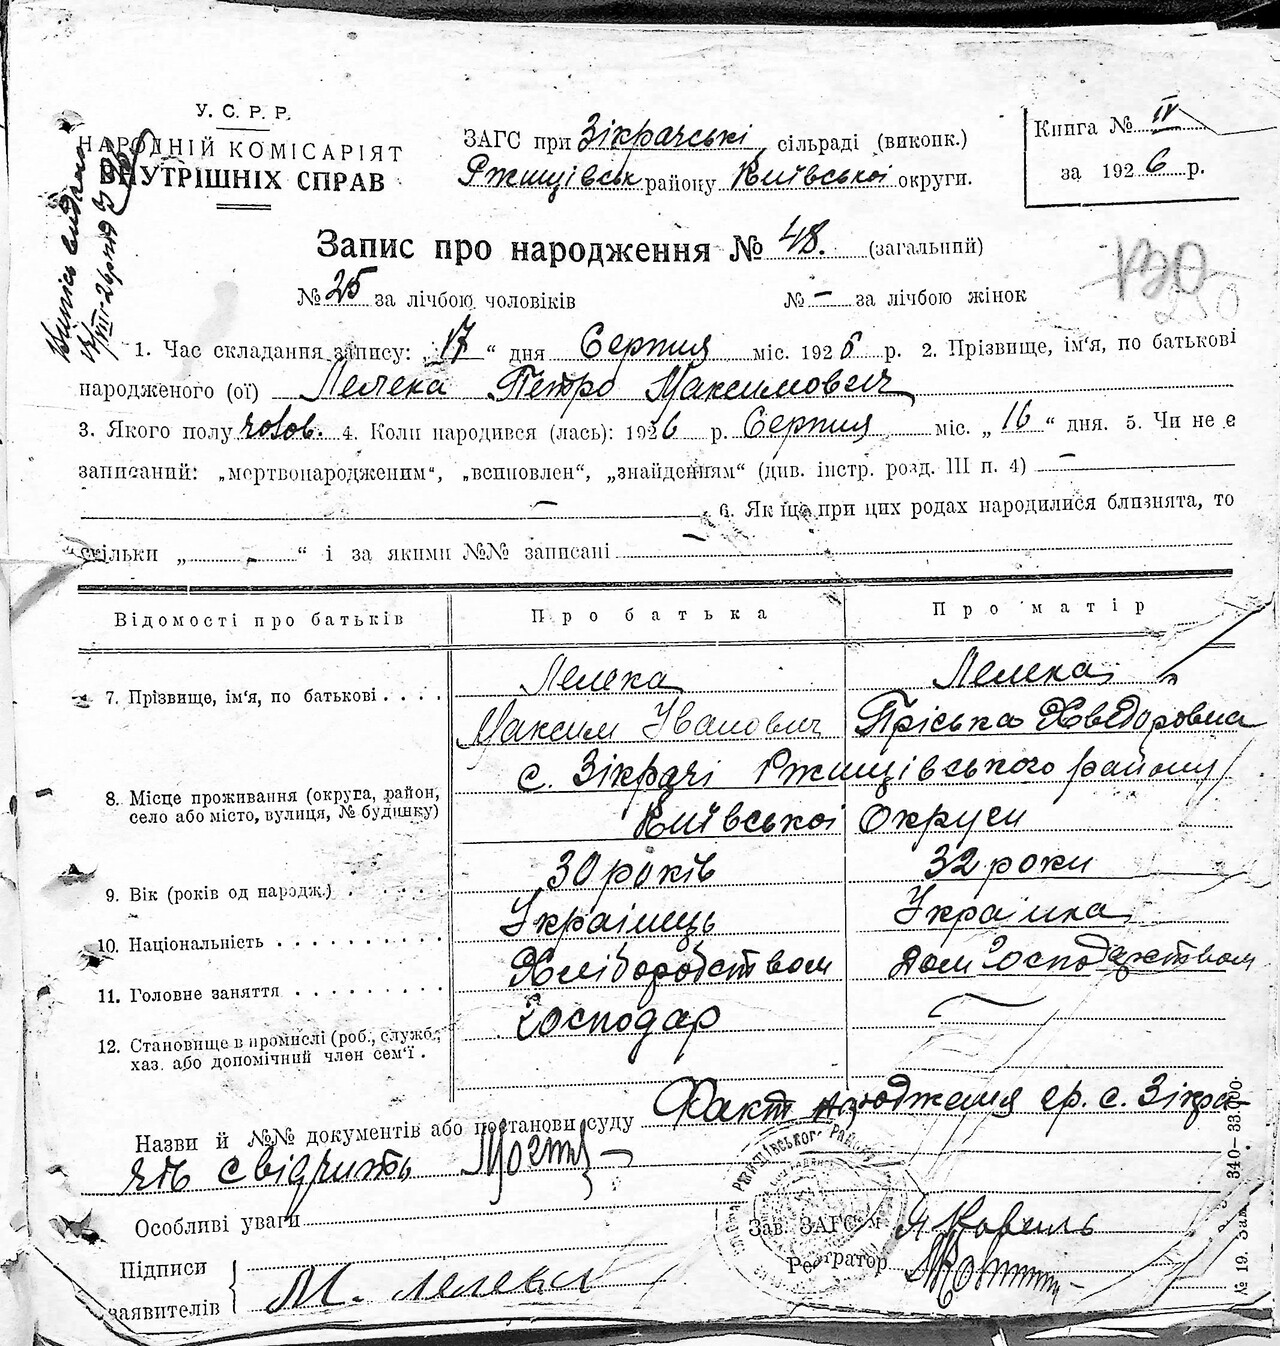 У. С. Р. Р.
НАРОДНІЙ КОМІСАРІЯТ
ВНУТРІШНІХ СПРАВ
ЗАГС при Зікрачські сільраді (виконк.)
Ржищівськ району Київської округи.
Книга № IV
за 1926 р.
Запис про народження № 48. (загальний)
№ 25 за лічбою чоловіків № – за лічбою жінок
1. Час складання запису: „17“ дня Серпня міс. 1926 р. 2. Прізвище, ім'я, по батькові
народженого (ої) Лелека Петро Максимович
3. Якого полу чолов. 4. Коли народився (лась): 1926 р. Серпня міс. „16“ дня. 5. Чи не є
записаний: „мертвонародженим“, „всиновлен“, „знайденням“ (див. інстр. розд. III п. 4) –
– 6. Як що при цих родах народилися близнята, то
скільки „ – “ і за якими №№ записані –
Відомості про батьків Про батька Про матір
7. Прізвище, ім'я, по батькові . . . . Лелека Лелека
Максим Іванович Пріська Хведоровна
8. Місце проживання (округа, район, село або місто, вулиця, № будинку) с. Зікрачі Ржищівського району
Київської Округи
9. Вік (років од народж.) 30 років 32 роки
10. Національність Українець Українка
11. Головне заняття Хліборобством Дом Господарством
12. Становище в промислі (роб., служб., Господар –
хаз. або допомічний член сем'ї .
Назви й №№ документів або постанови суду Факт народження гр. с. Зікра-
чів свідчить
Особливі уваги
Зав. ЗАГС'ом Я Коваль
Реєстратор
Підписи
заявителів М. Лелека
340—33.000.